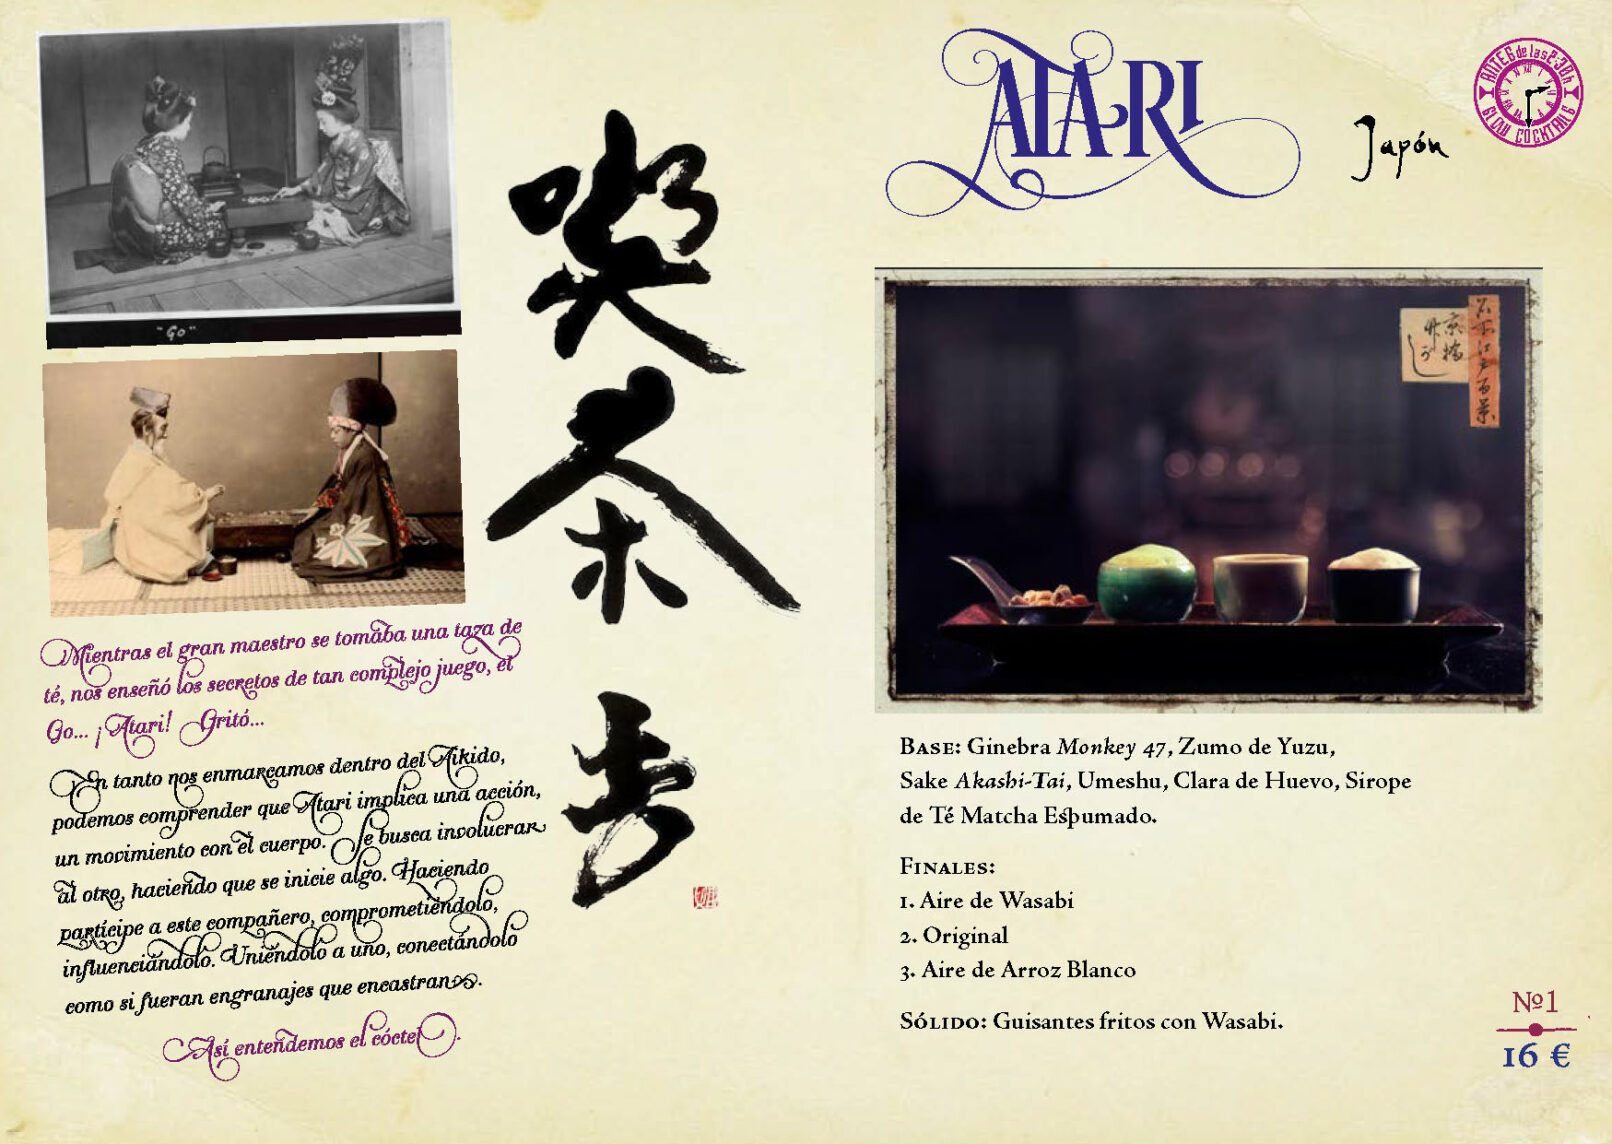 "Go"
Mientras el gran maestro se tomaba una taza de
té, nos enseñó los secretos de tan complejo juego, el
Go... ¡Atari! Gritó...
En tanto nos enmarcamos dentro del Aikido,
podemos comprender que Atari implica una acción,
un movimiento con el cuerpo. Se busca involucrar
al otro, haciendo que se inicie algo. Haciendo
partícipe a este compañero, comprometiéndolo,
influenciándolo. Uniéndolo a uno, conectándolo
como si fueran engranajes que encastran.
Así entendemos el cóctel.
喫
茶
去
ATARI
Japón
ANTES de las 2:30h
SLOW COCKTAILS
名所江戸百景
京橋
竹がし
BASE: Ginebra Monkey 47, Zumo de Yuzu,
Sake Akashi-Tai, Umeshu, Clara de Huevo, Sirope
de Té Matcha Espumado.
FINALES:
1. Aire de Wasabi
2. Original
3. Aire de Arroz Blanco
SÓLIDO: Guisantes fritos con Wasabi.
Nº1
16 €